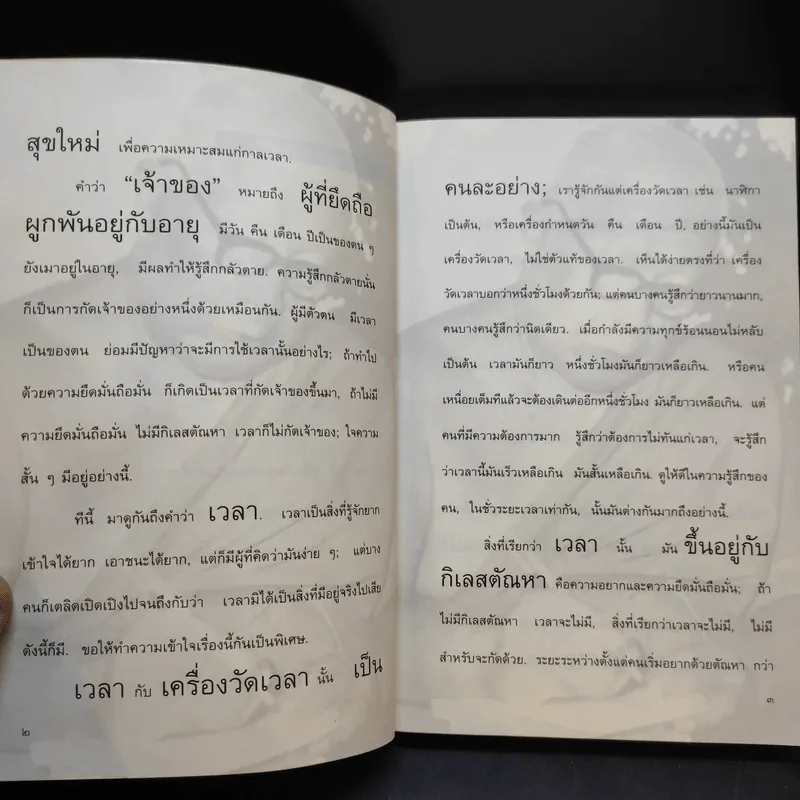 สุขใหม่ เพื่อความเหมาะสมแก่กาลเวลา.
คำว่า “เจ้าของ” หมายถึง ผู้ที่ยึดถือ
ผูกพันอยู่กับอายุ มีวัน คืน เดือน ปีเป็นของตน ๆ
ยังเมาอยู่ในอายุ, มีผลทำให้รู้สึกกลัวตาย. ความรู้สึกกลัวตายนั่น
ก็เป็นการกัดเจ้าของอย่างหนึ่งด้วยเหมือนกัน. ผู้มีตัวตน มีเวลา
เป็นของตน ย่อมมีปัญหาว่าจะมีการใช้เวลานั้นอย่างไร; ถ้าทำไป
ด้วยความยึดมั่นถือมั่น ก็เกิดเป็นเวลาที่กัดเจ้าของขึ้นมา, ถ้าไม่มี
ความยึดมั่นถือมั่น ไม่มีกิเลสตัณหา เวลาก็ไม่กัดเจ้าของ; ใจความ
สั้น ๆ มีอยู่อย่างนี้.
ทีนี้ มาดูกันถึงคำว่า เวลา. เวลาเป็นสิ่งที่รู้จักยาก
เข้าใจได้ยาก เอาชนะได้ยาก, แต่ก็มีผู้ที่คิดว่ามันง่าย ๆ; แต่บาง
คนก็เตลิดเปิดเปิงไปจนถึงกับว่า เวลามิได้เป็นสิ่งที่มีอยู่จริงไปเสีย
ดังนี้ก็มี. ขอให้ทำความเข้าใจเรื่องนี้กันเป็นพิเศษ.
เวลา กับ เครื่องวัดเวลา นั้น เป็น
๒
คนละอย่าง; เรารู้จักกันแต่เครื่องวัดเวลา เช่น นาฬิกา
เป็นต้น, หรือเครื่องกำหนดวัน คืน เดือน ปี, อย่างนี้มันเป็น
เครื่องวัดเวลา, ไม่ใช่ตัวแท้ของเวลา. เห็นได้ง่ายตรงที่ว่า เครื่อง
วัดเวลาบอกว่าหนึ่งชั่วโมงด้วยกัน; แต่คนบางคนรู้สึกว่ายาวนานมาก,
คนบางคนรู้สึกว่านิดเดียว. เมื่อกำลังมีความทุกข์ร้อนนอนไม่หลับ
เป็นต้น เวลามันก็ยาว หนึ่งชั่วโมงมันก็ยาวเหลือเกิน. หรือคน
เหนื่อยเต็มทีแล้วจะต้องเดินต่ออีกหนึ่งชั่วโมง มันก็ยาวเหลือเกิน. แต่
คนที่มีความต้องการมาก รู้สึกว่าต้องการไม่ทันแก่เวลา, จะรู้สึก
ว่าเวลานี้มันเร็วเหลือเกิน มันสั้นเหลือเกิน. ดูให้ดีในความรู้สึกของ
คน, ในชั่วระยะเวลาเท่ากัน, นั้นมันต่างกันมากถึงอย่างนี้.
สิ่งที่เรียกว่า เวลา นั้น มัน ขึ้นอยู่กับ
กิเลสตัณหา คือความอยากและความยึดมั่นถือมั่น; ถ้า
ไม่มีกิเลสตัณหา เวลาจะไม่มี, สิ่งที่เรียกว่าเวลาจะไม่มี, ไม่มี
สำหรับจะกัดด้วย. ระยะระหว่างตั้งแต่คนเริ่มอยากด้วยตัณหา กว่า
๓